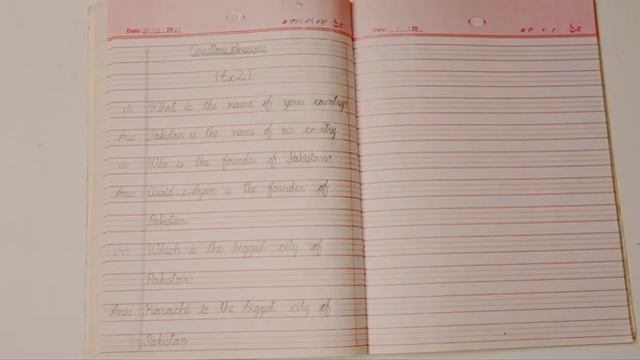 Date:
Date: 20
Question Answers
(Ex 2)
(i) What is the name of your country?
Ans: Pakistan is the name of our country
(ii) Who is the founder of Pakistan?
Ans: Quaid-e-Azam is the founder of
Pakistan
(iii) Which is the biggest city of
Pakistan?
Ans: Karachi is the biggest city of
Pakistan